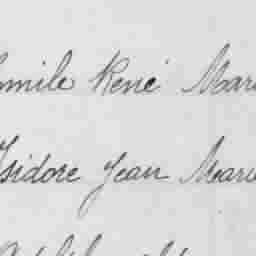 Emile René Marie
Isidore Jean Marie